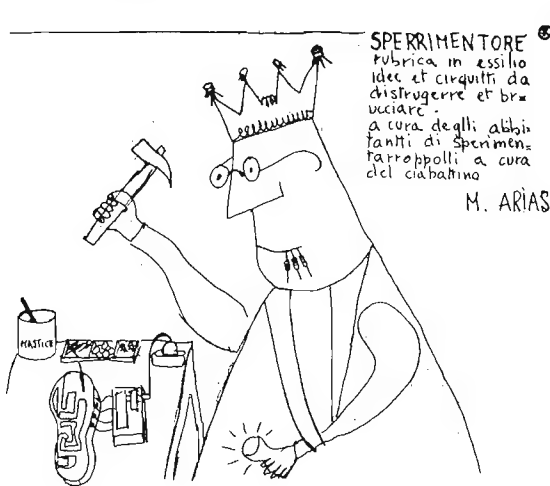 SPERRIMENTORE ®
rubrica in essilio
idee et cirquitti da
distrugerre et br=
ucciare.
a cura deglli abbi=
tantti di sperimen=
tarroppolli a cura
del ciabattino
M. ARIAS
MASTICE